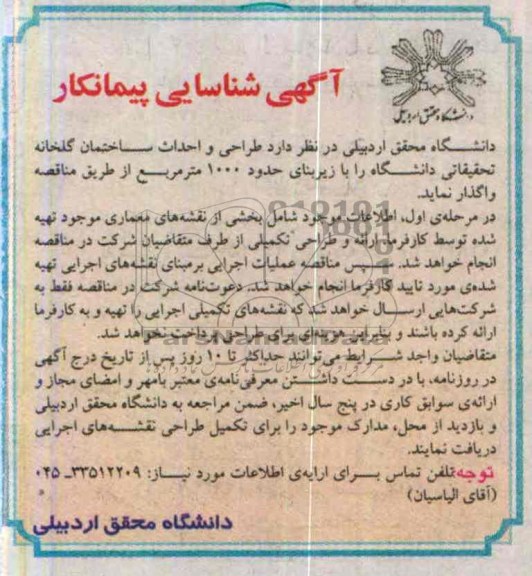 دانشگاه محقق اردبیلی
آگهی شناسایی پیمانکار
دانشگاه محقق اردبیلی در نظر دارد طراحی و احداث ساختمان گلخانه
تحقیقاتی دانشگاه را با زیربنای حدود ۱۰۰۰ مترمربع از طریق مناقصه
واگذار نماید.
در مرحله‌ی اول، اطلاعات موجود شامل بخشی از نقشه‌های معماری موجود تهیه
شده توسط کارفرما ارائه و طراحی تکمیلی از طرف متقاضیان شرکت در مناقصه
انجام خواهد شد. سپس مناقصه عملیات اجرایی برمبنای نقشه‌های اجرایی تهیه
شده‌ی مورد تایید کارفرما انجام خواهد شد. دعوت‌نامه شرکت در مناقصه فقط به
شرکت‌هایی ارسال خواهد شد که نقشه‌های تکمیلی اجرایی را تهیه و به کارفرما
ارائه کرده باشند و بنابراین هزینه‌ای برای طراحی پرداخت نخواهد شد.
متقاضیان واجد شرایط می‌توانند حداکثر تا ۱۰ روز پس از تاریخ درج آگهی
در روزنامه، با در دست داشتن معرفی‌نامه‌ی معتبر بامهر و امضای مجاز و
ارائه‌ی سوابق کاری در پنج سال اخیر، ضمن مراجعه به دانشگاه محقق اردبیلی
و بازدید از محل، مدارک موجود را برای تکمیل طراحی نقشه‌های اجرایی
دریافت نمایند.
توجه: تلفن تماس برای ارایه‌ی اطلاعات مورد نیاز: ۳۳۵۱۲۲۰۹ـ ۰۴۵
(آقای الیاسیان)
دانشگاه محقق اردبیلی
ParsNamadData